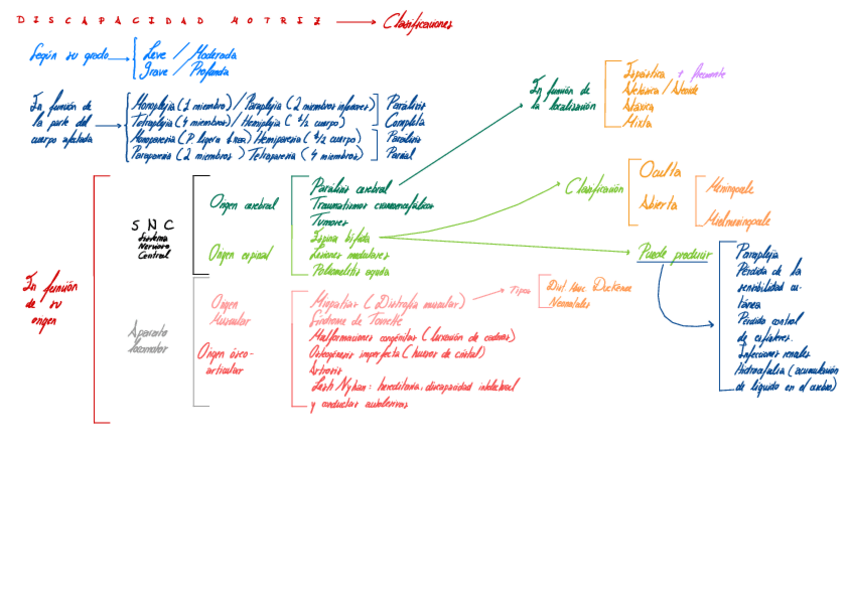 DISCAPACIDAD MOTRIZ → Clasificaciones
Según su grado → Leve / Moderada
Grave / Profunda
En función de la parte del cuerpo afectada →
Monoplejia (1 miembro) / Paraplejia (2 miembros inferiores)
Tetraplejia (4 miembros) / Hemiplejia (1/2 cuerpo)
Parálisis
Completa
Monoparesia (P. ligera 1 Hemiparesia (1/2 cuerpo)
Paraparesia (2 miembros) Tetraparesia (4 miembros)
Parálisis
Parcial
En función de
la localización
Espástica + frecuente
Atetósica /
Atáxica
Mixta
En función
de su
origen
SNC
Sistema
Nervioso
Central
Origen cerebral
Parálisis cerebral
Traumatismos craneoencefálicos
Tumores
Origen espinal
Espina bífida
Lesiones medulares
Poliomelitis aguda
Clasificación
Oculta
Abierta
Meningocele
Mielmeningocele
Puede producir
Paraplejia
Pérdida de la
sensibilidad cu-
tánea
Pérdida control
de esfínteres.
Infecciones renales
Hidrocefalia (acumulación
de líquido en el cerebro)
Aparato
locomotor
Origen
Muscular
Miopatías (Distrofia muscular)
Tipos
Dist. Musc Duchenne
Neonatales
Síndrome de Tourette
Origen óseo-
articular
Malformaciones congénitas (luxación de caderas)
Osteogénesis imperfecta (huesos de cristal)
Artrosis
Lesch Nyhan: hereditaria, discapacidad intelectual
y conductas autolesivas